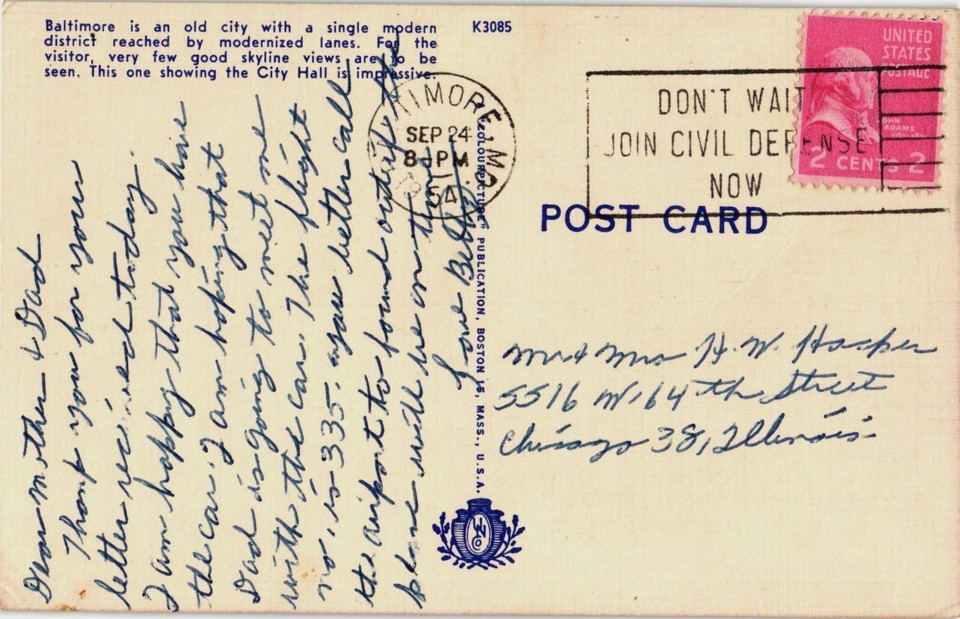 Baltimore is an old city with a single modern
district reached by modernized lanes. For the
visitor, very few good skyline views are to be
seen. This one showing the City Hall is impressive.
K3085
Dear Mother & Dad
Thank you for your
letter received today.
I am happy that you have
the car. I am hoping that
Dad is going to meet me
with the car. The flight
no. is 335. you better call
the airport to found out if the
plane will be on time.
Love
BALTIMORE, MD.
SEP 24
8-PM
1954
DON'T WAIT
JOIN CIVIL DEFENSE
NOW
UNITED
STATES
POSTAGE
JOHN
ADAMS
2 CENTS 2
POST CARD
"COLOURPICTURE" PUBLICATION, BOSTON 15, MASS., U.S.A.
Mr & Mrs H. W. Hosper
5516 W. 64th Street
Chicago 38, Illinois.